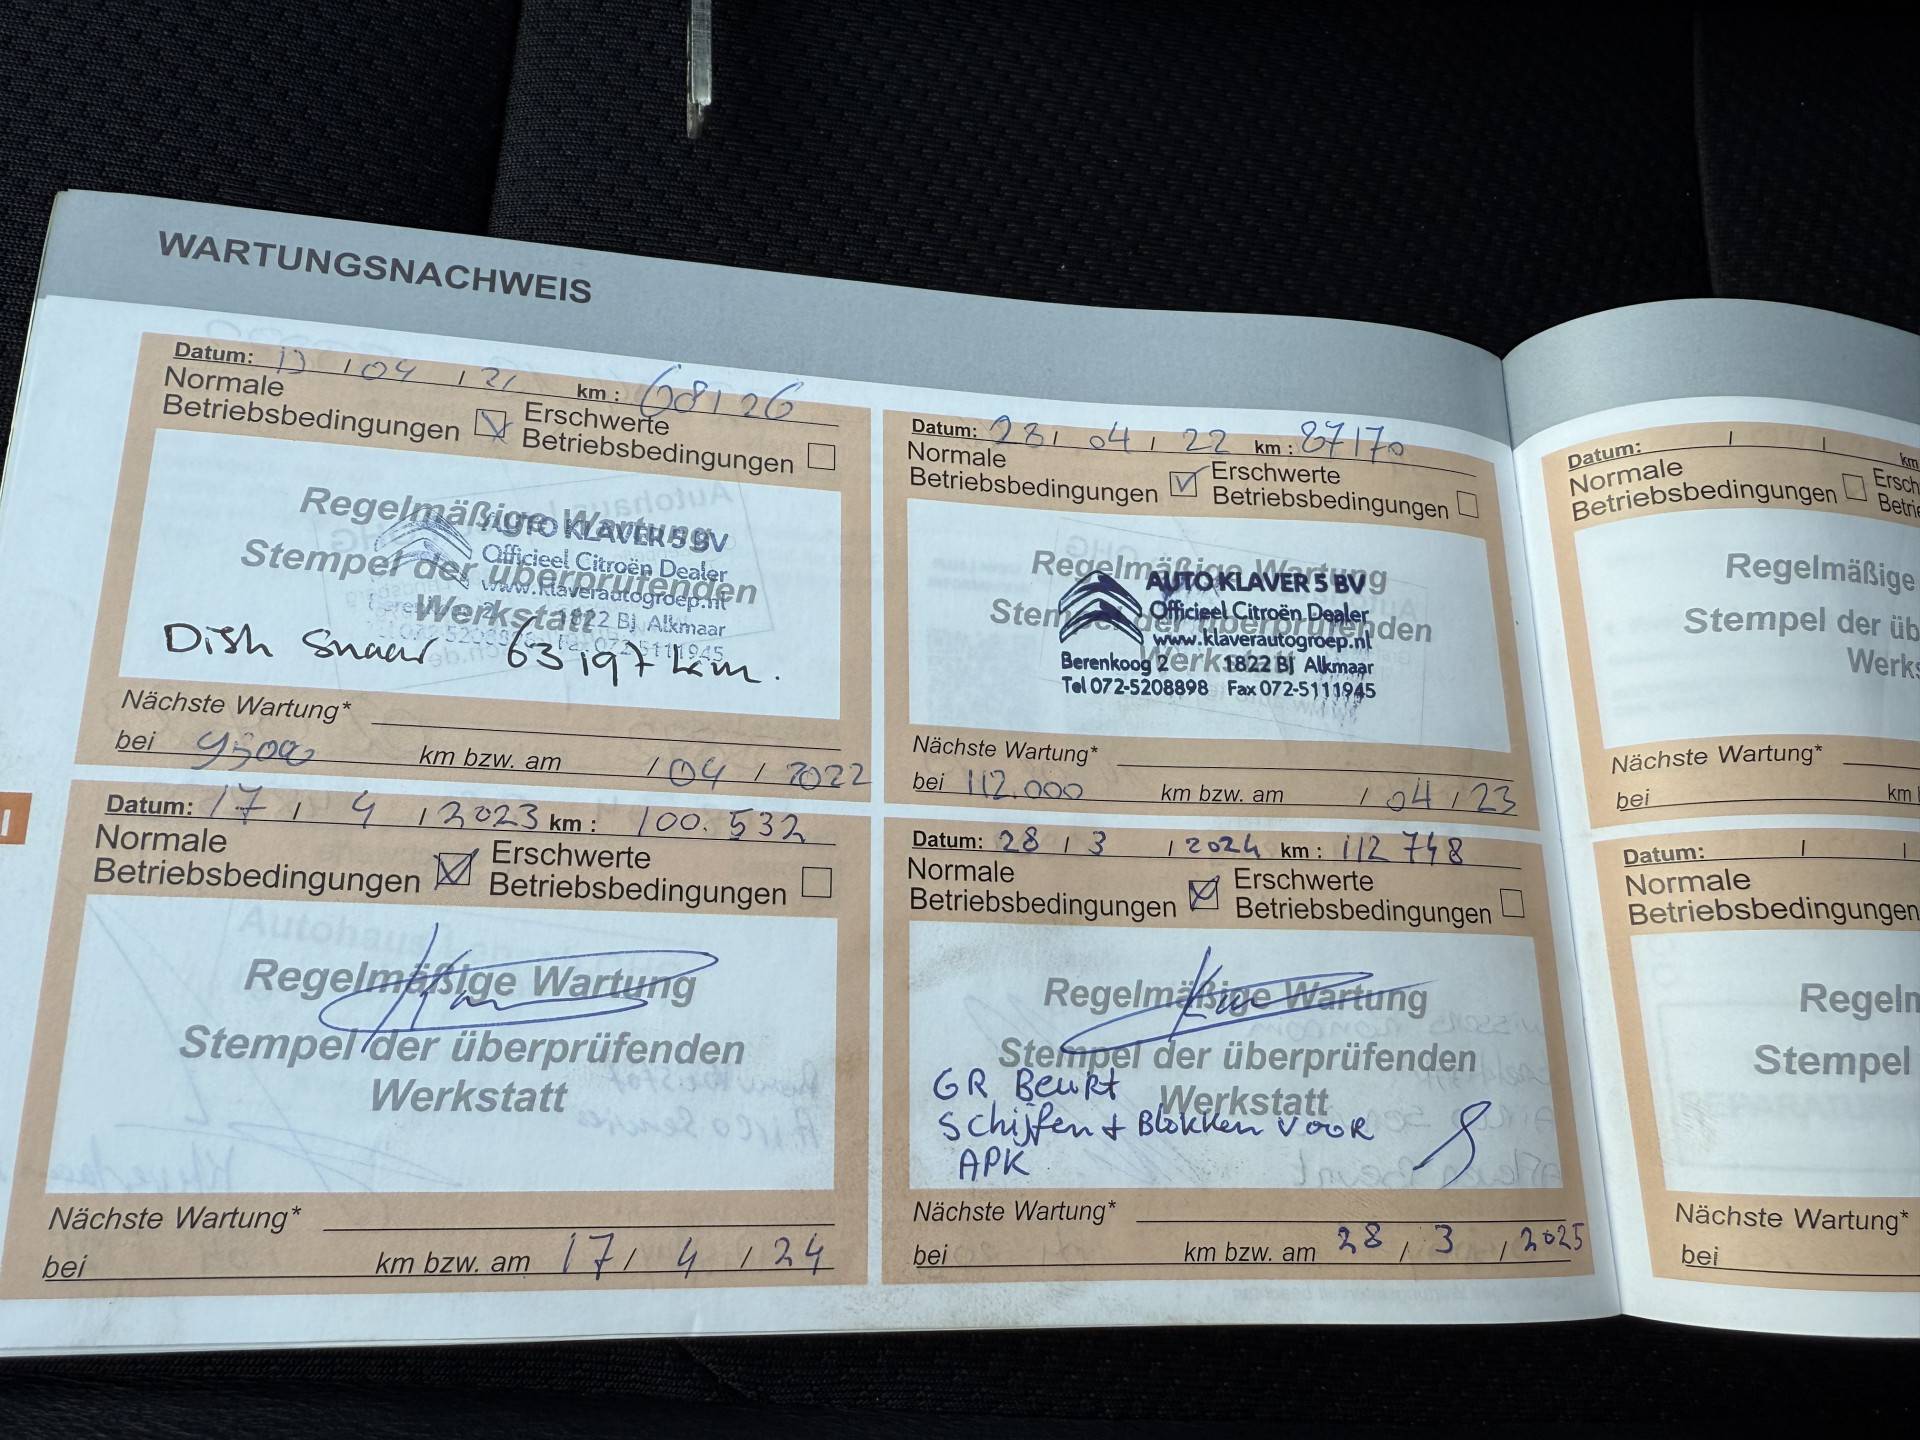 WARTUNGSNACHWEIS
Datum: 13 / 04 / 21 km : 68126
Normale
Betriebsbedingungen
Erschwerte
Betriebsbedingungen
Regelmäßige Wartung
Stempel der überprüfenden
Werkstatt
AUTO KLAVER 5 BV
Officieel Citroën Dealer
www.klaverautogroep.nl
Berenkoog 2 1822 BJ Alkmaar
Tel 072-5208898 Fax 072-5111945
Dish Snaar 63197 km.
Nächste Wartung*
bei 95000 km bzw. am / 04 / 2022
Datum: 28 / 04 / 22 km : 87170
Normale
Betriebsbedingungen
Erschwerte
Betriebsbedingungen
Regelmäßige Wartung
Stempel der überprüfenden
Werkstatt
AUTO KLAVER 5 BV
Officieel Citroën Dealer
www.klaverautogroep.nl
Berenkoog 2 1822 BJ Alkmaar
Tel 072-5208898 Fax 072-5111945
Nächste Wartung*
bei 112.000 km bzw. am / 04 / 23
Datum: 17 / 4 / 2023 km : 100.532
Normale
Betriebsbedingungen
Erschwerte
Betriebsbedingungen
Regelmäßige Wartung
Stempel der überprüfenden
Werkstatt
Nächste Wartung*
bei km bzw. am 17 / 4 / 24
Datum: 28 / 3 / 2024 km : 112 748
Normale
Betriebsbedingungen
Erschwerte
Betriebsbedingungen
Regelmäßige Wartung
Stempel der überprüfenden
Werkstatt
GR Beurt
Schijfen + Blokken VOOR
APK
Nächste Wartung*
bei km bzw. am 28 / 3 / 2025
Datum: / / km
Normale
Betriebsbedingungen
Ersch
Betrie
Regelmäßige
Stempel der üb
Werks
Nächste Wartung*
bei km b
Datum: / /
Normale
Betriebsbedingungen
Regeln
Stempel
Nächste Wartung*
bei